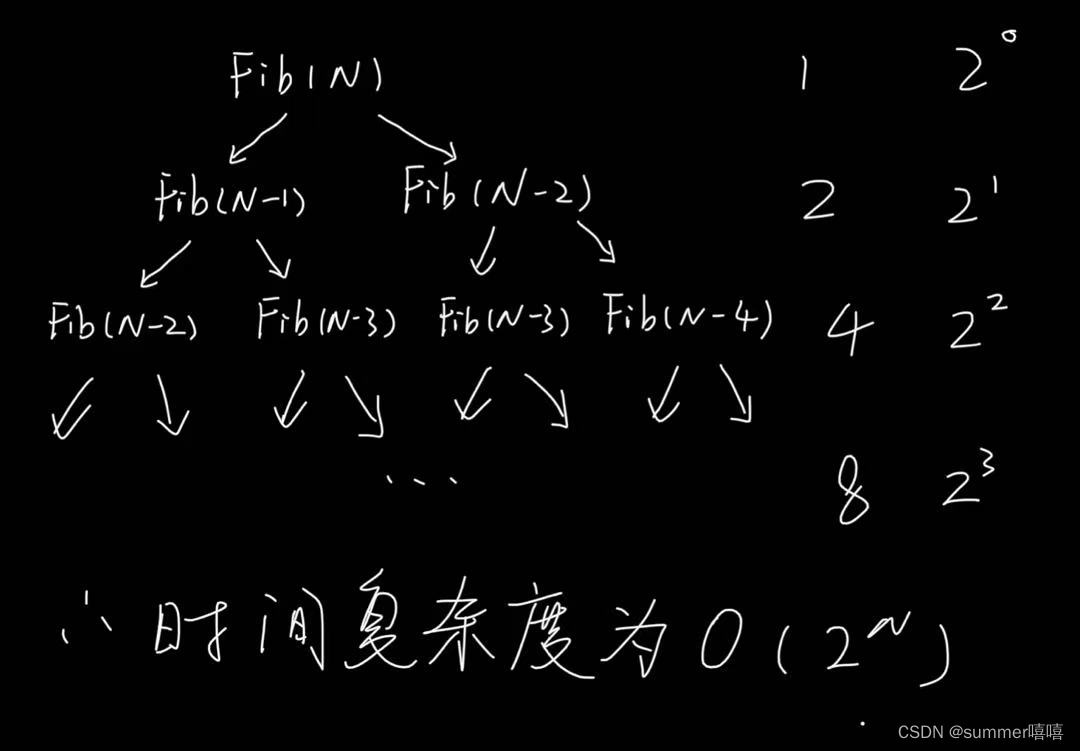 Fib(N) 1 2⁰
Fib(N-1) Fib(N-2) 2 2¹
Fib(N-2) Fib(N-3) Fib(N-3) Fib(N-4) 4 2²
...
8 2³
∴ 时间复杂度为 O(2ᴺ)
CSDN @summer嘻嘻